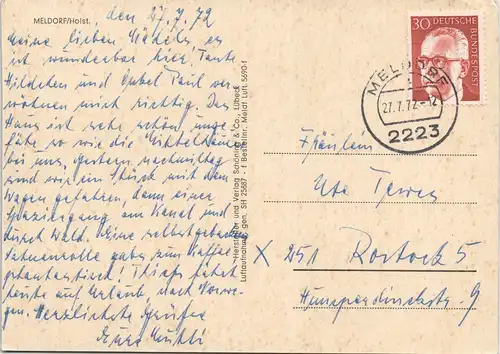 MELDORF/Holst.
, den 27.7.72
Meine lieben Mädels, es
ist wunderbar hier, Tante
Hildchen und Onkel Paul ver-
wöhnen mich richtig. Das
Haus ist sehr schön, unge-
fähr so wie die
bei uns, gestern nachmittag
sind wir ein Stück mit dem
Wagen gefahren, dann einen
Spaziergang am Kanal und
durch Wald. Eine selbstgebackene
Sahnerolle gabs zum Kaffee
phantastisch! fährt
heute auf Urlaub, nach Norwe-
gen. Herzlichste Grüße
Eure Mutti
Hersteller und Verlag Schöning & Co., Lübeck
Luftaufnahme gen. SH 25687 - 1 Bestellnr. Meldt Luft 5690-1
30 DEUTSCHE
BUNDESPOST
MELDORF
27.7.72-12
2223
Fräulein
Ute
X 251 Rostock 5
9